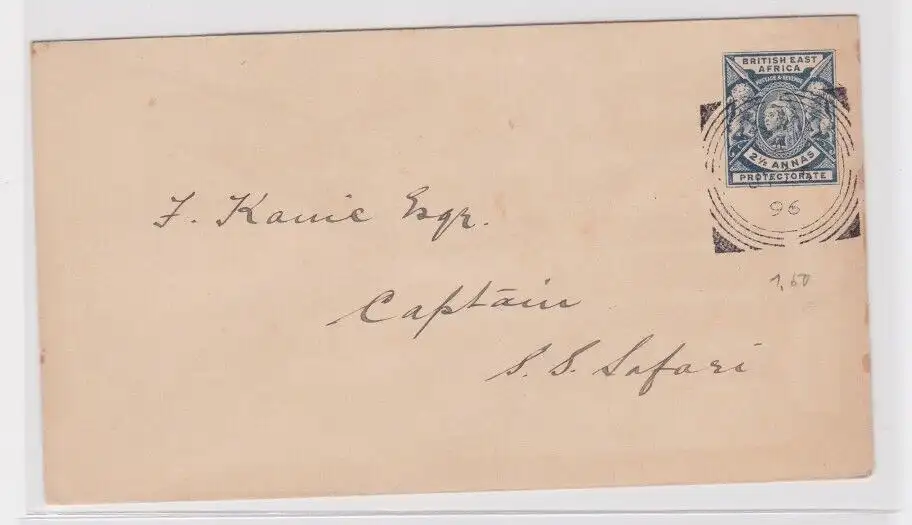 BRITISH EAST
AFRICA
POSTAGE & REVENUE
2½ ANNAS
PROTECTORATE
96
F. Kanie Esqr.
Captain
S. S. Safari
1,60